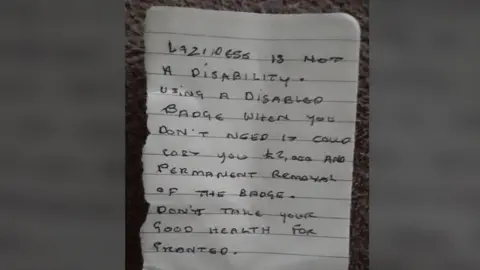 LAZINESS IS NOT
A DISABILITY.
USING A DISABLED
BADGE WHEN YOU
DON'T NEED IT COULD
COST YOU £2,000 AND
PERMANENT REMOVAL
OF THE BADGE.
DON'T TAKE YOUR
GOOD HEALTH FOR
GRANTED.